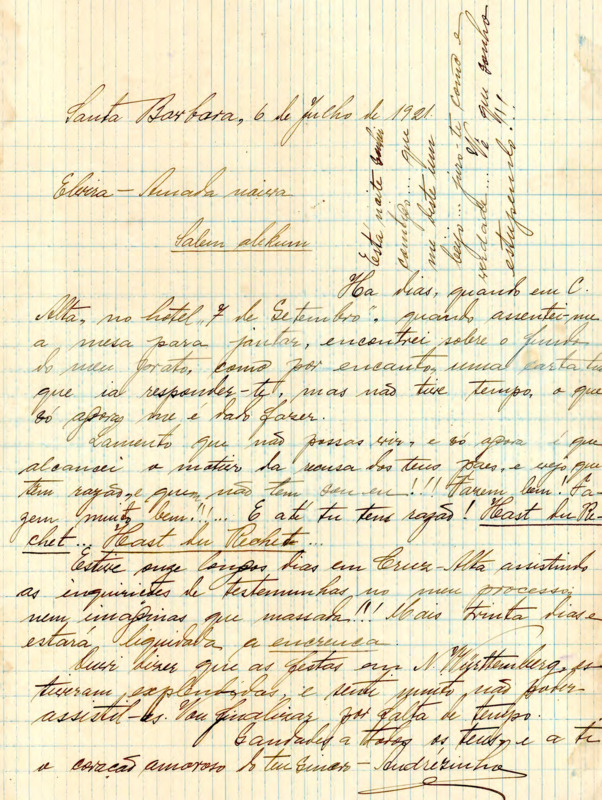 Santa Barbara, 6 de Julho de 1921.
Elvira - Amada noiva
Salem alekum
Ha dias, quando em C.
Alta, no hotel "7 de Setembro", quando assentei-me
a mesa para jantar, encontrei sobre o fundo
do meu prato, como por encanto, uma carta tua
que ia responder-te, mas não tive tempo, o que
só agora me é dado fazer.
Lamento que não possas vir, e só agora é que
alcancei o motivo da recusa dos teus paes, e vejo que
têm razão, e quem não tem sou eu!!! Fazem bem! Fa-
zem muito bem!!!... E até tu tens razão! Hast du Re-
chet... Hast du Rechet...
Estive onze longos dias em Cruz-Alta assistindo
as inquirições de testemunhas no meu processo,
nem imaginas que massada!!! Mais trinta dias e
estará liquidada a encrenca.
Ouvi dizer que as festas em N. Württemberg, es-
tiveram explendidas, e senti muito não poder
assistil-as. Vou finalizar por falta de tempo.
Saudades a todos os teus, e a ti
o coração amoroso do teu sincero - Andrézinho
Esta noite sonhei
contigo... que
me deste um
beijo... juro-te como é
verdade... Vê que sonho
estupendo!!!